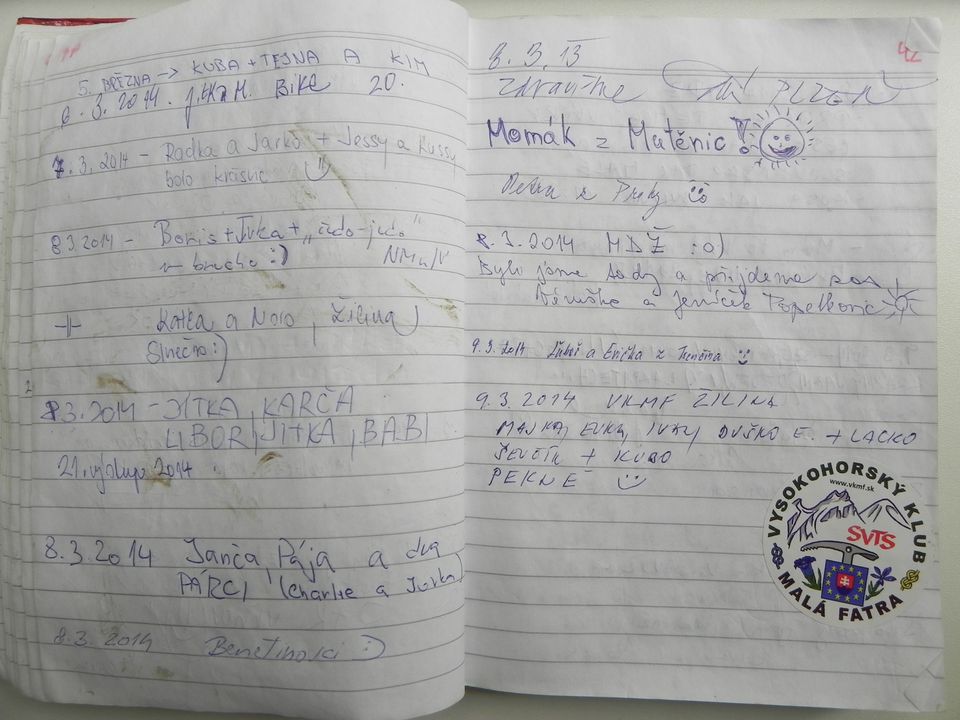 5. BŘEZNA → KUBA + TEJNA A KIM
6. 3. 2014. Jitka M. BIKE 20.
7. 3. 2014 - Radka a Jarko + Jessy a Kussy
bolo krásne
8.3.2014 - Boris + Ivka + „čudo-judo"
v bruchu :) NMn/V
-||- Katka a Noro, Žilina
Slnečno :)
8.3.2014 - JITKA, KARČA
LIBOR, JITKA, BABI
21. výstup 2014
8.3.2014 Janča, Pája a dva
PÁRCI (Charlie a Jurka)
8.3.2014 :)
42
8. 3. 13
Zdravíme PLZEŇ
Momák z Mutěnic!
Petra z Prahy
8.3.2014 MDŽ :o)
Byli jsme tady a přijdeme zas
a Jeníček
9.3.2014 Ľuboš a Evička z Trenčína
9.3.2014 VKMF ŽILINA
MAJKA, EVKA, IVAN, DUŠKO E. + LACKO
ŠEVČÍK + KUBO
PEKNE
VYSOKOHORSKÝ KLUB
www.vkmf.sk
SVTS
MALÁ FATRA